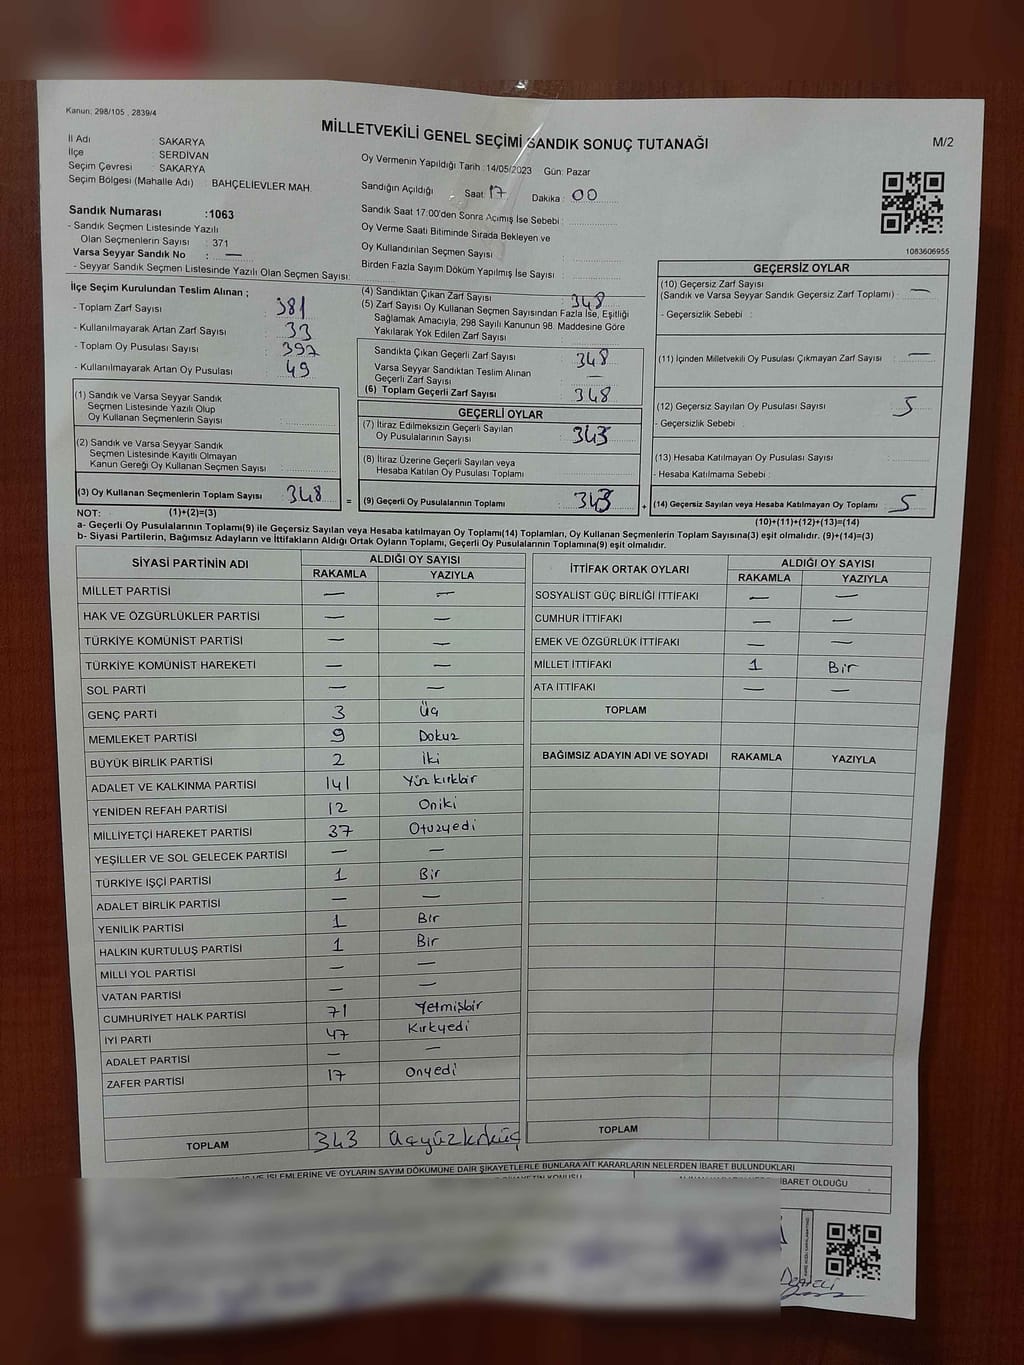 Kanun: 298/105 , 2839/4
MİLLETVEKİLİ GENEL SEÇİMİ SANDIK SONUÇ TUTANAĞI
M/2
İl Adı SAKARYA
İlçe SERDİVAN
Seçim Çevresi SAKARYA
Seçim Bölgesi (Mahalle Adı) : BAHÇELİEVLER MAH.
Oy Vermenin Yapıldığı Tarih : 14/05/2023 Gün: Pazar
Sandığın Açıldığı Saat : 17 Dakika : 00
Sandık Saat 17:00'den Sonra Açımış İse Sebebi :
Oy Verme Saati Bitiminde Sırada Bekleyen ve
Oy Kullandırılan Seçmen Sayısı :
Birden Fazla Sayım Döküm Yapılmış İse Sayısı :
1083606955
Sandık Numarası :1063
- Sandık Seçmen Listesinde Yazılı
Olan Seçmenlerin Sayısı : 371
Varsa Seyyar Sandık No : —
- Seyyar Sandık Seçmen Listesinde Yazılı Olan Seçmen Sayısı:
İlçe Seçim Kurulundan Teslim Alınan ;
- Toplam Zarf Sayısı : 381
- Kullanılmayarak Artan Zarf Sayısı : 33
- Toplam Oy Pusulası Sayısı : 397
- Kullanılmayarak Artan Oy Pusulası : 49
(1) Sandık ve Varsa Seyyar Sandık
Seçmen Listesinde Yazılı Olup
Oy Kullanan Seçmenlerin Sayısı :
(2) Sandık ve Varsa Seyyar Sandık
Seçmen Listesinde Kayıtlı Olmayan
Kanun Gereği Oy Kullanan Seçmen Sayısı :
(3) Oy Kullanan Seçmenlerin Toplam Sayısı : 348
(4) Sandıktan Çıkan Zarf Sayısı : 348
(5) Zarf Sayısı Oy Kullanan Seçmen Sayısından Fazla İse, Eşitliği
Sağlamak Amacıyla, 298 Sayılı Kanunun 98. Maddesine Göre
Yakılarak Yok Edilen Zarf Sayısı :
Sandıkta Çıkan Geçerli Zarf Sayısı : 348
Varsa Seyyar Sandıktan Teslim Alınan
Geçerli Zarf Sayısı : —
(6) Toplam Geçerli Zarf Sayısı : 348
GEÇERLİ OYLAR
(7) İtiraz Edilmeksizin Geçerli Sayılan
Oy Pusulalarının Sayısı : 343
(8) İtiraz Üzerine Geçerli Sayılan veya
Hesaba Katılan Oy Pusulası Toplamı :
= (9) Geçerli Oy Pusulalarının Toplamı : 343
GEÇERSİZ OYLAR
(10) Geçersiz Zarf Sayısı
(Sandık ve Varsa Seyyar Sandık Geçersiz Zarf Toplamı) : —
- Geçersizlik Sebebi :
(11) İçinden Milletvekili Oy Pusulası Çıkmayan Zarf Sayısı : —
(12) Geçersiz Sayılan Oy Pusulası Sayısı : 5
- Geçersizlik Sebebi :
(13) Hesaba Katılmayan Oy Pusulası Sayısı :
- Hesaba Katılmama Sebebi :
+ (14) Geçersiz Sayılan veya Hesaba Katılmayan Oy Toplamı : 5
NOT: (1)+(2)=(3)
(10)+(11)+(12)+(13)=(14)
a- Geçerli Oy Pusulalarının Toplamı(9) ile Geçersiz Sayılan veya Hesaba katılmayan Oy Toplamı(14) Toplamları, Oy Kullanan Seçmenlerin Toplam Sayısına(3) eşit olmalıdır. (9)+(14)=(3)
b- Siyasi Partilerin, Bağımsız Adayların ve İttifakların Aldığı Ortak Oyların Toplamı, Geçerli Oy Pusulalarının Toplamına(9) eşit olmalıdır.
SİYASİ PARTİNİN ADI ALDIĞI OY SAYISI
RAKAMLA YAZIYLA
MİLLET PARTİSİ — —
HAK VE ÖZGÜRLÜKLER PARTİSİ — —
TÜRKİYE KOMÜNİST PARTİSİ — —
TÜRKİYE KOMÜNİST HAREKETİ — —
SOL PARTİ — —
GENÇ PARTİ 3 Üç
MEMLEKET PARTİSİ 9 Dokuz
BÜYÜK BİRLİK PARTİSİ 2 İki
ADALET VE KALKINMA PARTİSİ 141 Yüzkırkbir
YENİDEN REFAH PARTİSİ 12 Oniki
MİLLİYETÇİ HAREKET PARTİSİ 37 Otuzyedi
YEŞİLLER VE SOL GELECEK PARTİSİ — —
TÜRKİYE İŞÇİ PARTİSİ 1 Bir
ADALET BİRLİK PARTİSİ — —
YENİLİK PARTİSİ 1 Bir
HALKIN KURTULUŞ PARTİSİ 1 Bir
MİLLİ YOL PARTİSİ — —
VATAN PARTİSİ — —
CUMHURİYET HALK PARTİSİ 71 Yetmişbir
İYİ PARTİ 47 Kırkyedi
ADALET PARTİSİ — —
ZAFER PARTİSİ 17 Onyedi
TOPLAM 343 Üçyüzkırküç
İTTİFAK ORTAK OYLARI ALDIĞI OY SAYISI
RAKAMLA YAZIYLA
SOSYALİST GÜÇ BİRLİĞİ İTTİFAKI — —
CUMHUR İTTİFAKI — —
EMEK VE ÖZGÜRLÜK İTTİFAKI — —
MİLLET İTTİFAKI 1 Bir
ATA İTTİFAKI — —
TOPLAM
BAĞIMSIZ ADAYIN ADI VE SOYADI RAKAMLA YAZIYLA
TOPLAM
İŞLEMLERİNE VE OYLARIN SAYIM DÖKÜMÜNE DAİR ŞİKAYETLERLE BUNLARA AİT KARARLARIN NELERDEN İBARET BULUNDUKLARI
İBARET OLDUĞU